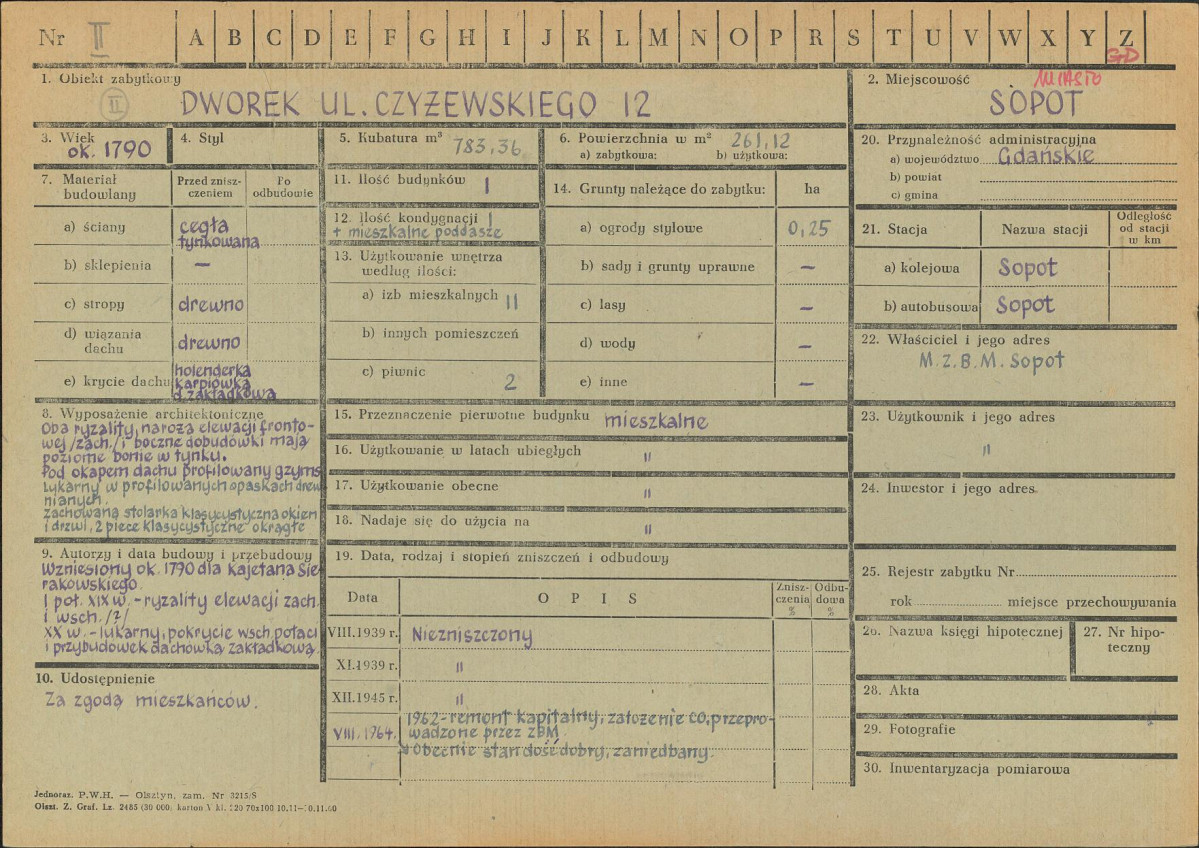 Nr II A B C D E F G H I J K L M N O P R S T U V W X Y Z
GD
1. Obiekt zabytkowy
II
DWOREK UL. CZYŻEWSKIEGO 12
2. Miejscowość
MIASTO
SOPOT
3. Wiek
ok. 1790
4. Styl
5. Kubatura m³ 783,36
6. Powierzchnia w m² 261,12
a) zabytkowa: b) użytkowa:
20. Przynależność administracyjna
a) województwo Gdańskie
b) powiat
c) gmina
7. Materiał
budowlany
Przed znisz-
czeniem
Po
odbudowie
a) ściany
cegła
tynkowana
b) sklepienia —
c) stropy drewno
d) wiązania
dachu
drewno
e) krycie dachu
holenderka
karpiówka
d. zakładkowa
11. Ilość budynków 1
12. Ilość kondygnacji 1
+ mieszkalne poddasze
13. Użytkowanie wnętrza
według ilości:
a) izb mieszkalnych 11
b) innych pomieszczeń
c) piwnic 2
14. Grunty należące do zabytku: ha
a) ogrody stylowe 0,25
b) sady i grunty uprawne —
c) lasy —
d) wody —
e) inne —
21. Stacja Nazwa stacji
Odległość
od stacji
w km
a) kolejowa Sopot
b) autobusowa Sopot
22. Właściciel i jego adres
M.Z.B.M. Sopot
8. Wyposażenie architektoniczne
Oba ryzality, naroża elewacji fronto-
wej /zach./ i boczne dobudówki mają
poziome bonie w tynku.
Pod okapem dachu profilowany gzyms
Lukarny w profilowanych opaskach drew
nianych.
Zachowana stolarka klasycystyczna okien
i drzwi, 2 piece klasycystyczne okrągłe
15. Przeznaczenie pierwotne budynku mieszkalne
16. Użytkowanie w latach ubiegłych "
17. Użytkowanie obecne "
18. Nadaje się do użycia na "
23. Użytkownik i jego adres
"
24. Inwestor i jego adres
9. Autorzy i data budowy i przebudowy
Wzniesiony ok. 1790 dla Kajetana Sie
rakowskiego.
I poł. XIX w. - ryzality elewacji zach.
i wsch. /?/
XX w. - lukarny, pokrycie wsch. połaci
i przybudówek dachówką zakładkową.
10. Udostępnienie
Za zgodą mieszkańców.
19. Data, rodzaj i stopień zniszczeń i odbudowy
Data OPIS
Znisz-
czenia
%
Odbu-
dowa
%
VIII.1939 r. Niezniszczony
XI.1939 r. "
XII.1945 r. "
VIII. 1964.
1962 - remont kapitalny, założenie CO, przepro-
wadzone przez ZBM
Obecnie stan dość dobry, zaniedbany.
25. Rejestr zabytku Nr
rok miejsce przechowywania
26. Nazwa księgi hipotecznej
27. Nr hipo-
teczny
28. Akta
29. Fotografie
30. Inwentaryzacja pomiarowa
Jednoraz. P.W.H. — Olsztyn, zam. Nr 3215/S
Olszt. Z. Graf. Lz. 2485 (30 000) karton V kl. 220 70x100